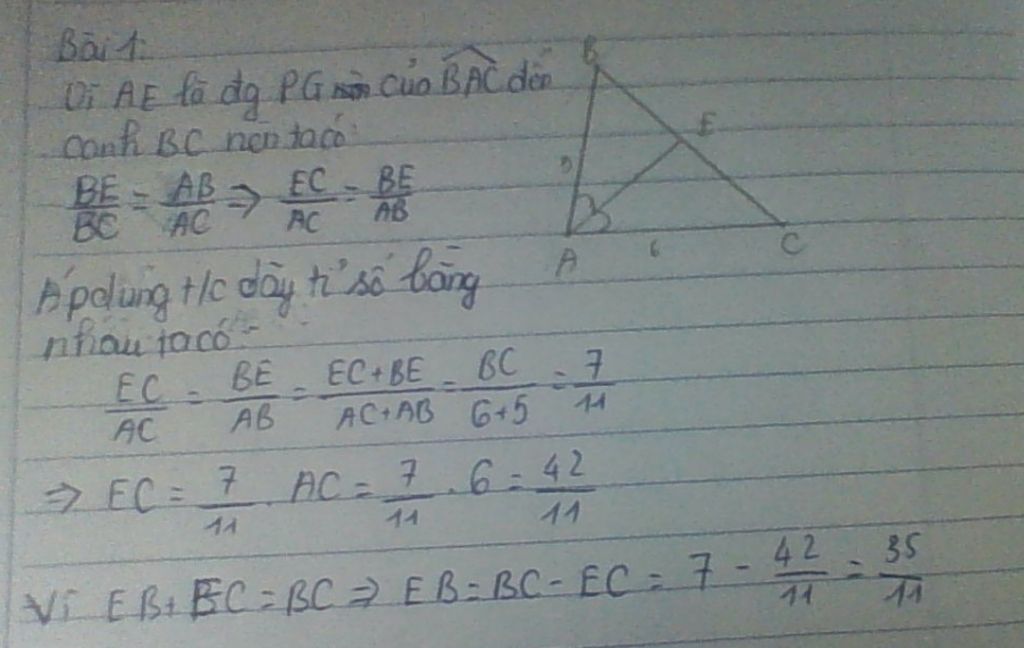 Bài 1:
Vì AE là đg PG của BAC đến
cạnh BC nên ta có:
BE/BC = AB/AC ⇒ EC/AC = BE/AB
Áp dụng t/c dãy tỉ số bằng
nhau ta có:
EC/AC = BE/AB = EC+BE/AC+AB = BC/6+5 = 7/11
⇒ EC = 7/11 . AC = 7/11 . 6 = 42/11
Vì EB + EC = BC ⇒ EB = BC - EC = 7 - 42/11 = 35/11
B
E
A
6
C